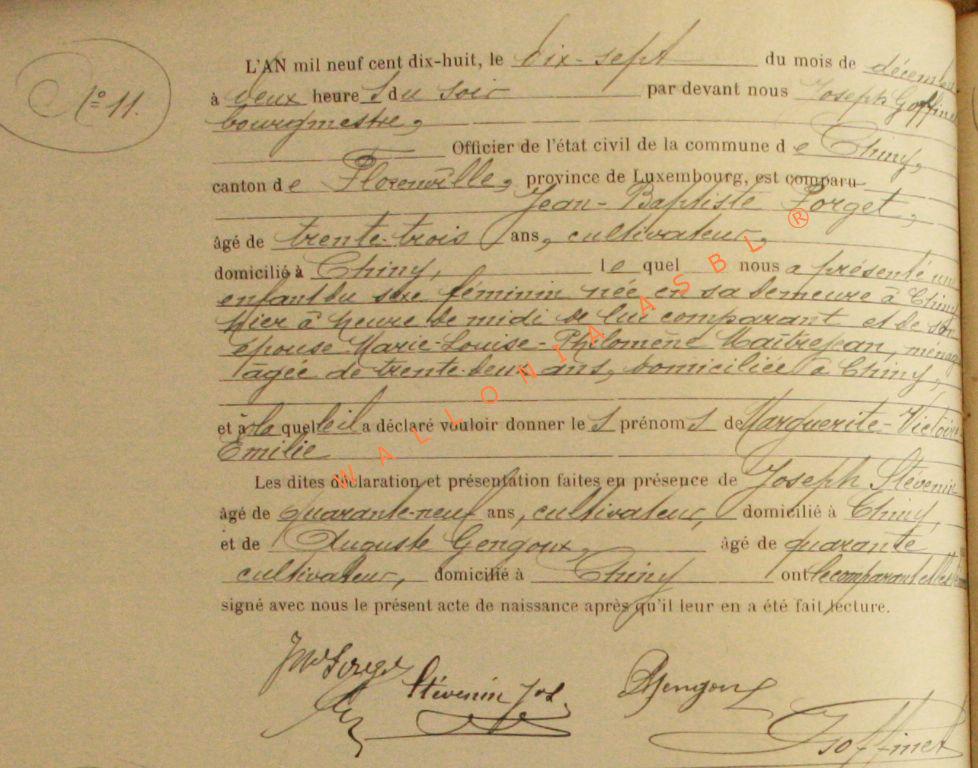 N° 11.
L'AN mil neuf cent dix-huit, le dix-sept du mois de décembre
à deux heure s du soir par devant nous Joseph Goffinet
bourgmestre,
Officier de l'état civil de la commune d e Chiny,
canton d e Florenville, province de Luxembourg, est comparu
Jean-Baptiste Forget,
âgé de trente-trois ans, cultivateur,
domicilié à Chiny, l e quel nous a présenté un
enfant du sexe féminin née en sa demeure à Chiny
hier à heure de midi de lui comparant et de son
épouse Marie-Louise-Philomène Maîtrejean, ménag
agée de trente-deux ans, domiciliée à Chiny,
et à la quel le il a déclaré vouloir donner le s prénom s de Marguerite-Victoire
Emilie
Les dites déclaration et présentation faites en présence de Joseph Stévenin
âgé de quarante-neuf ans, cultivateur, domicilié à Chiny,
et de Auguste Gengoux, âgé de quarante
cultivateur, domicilié à Chiny ont le comparant et les
signé avec nous le présent acte de naissance après qu'il leur en a été fait lecture.
Stévenin Jos.
Gengoux
Goffinet
WALLONIA ASBL ®